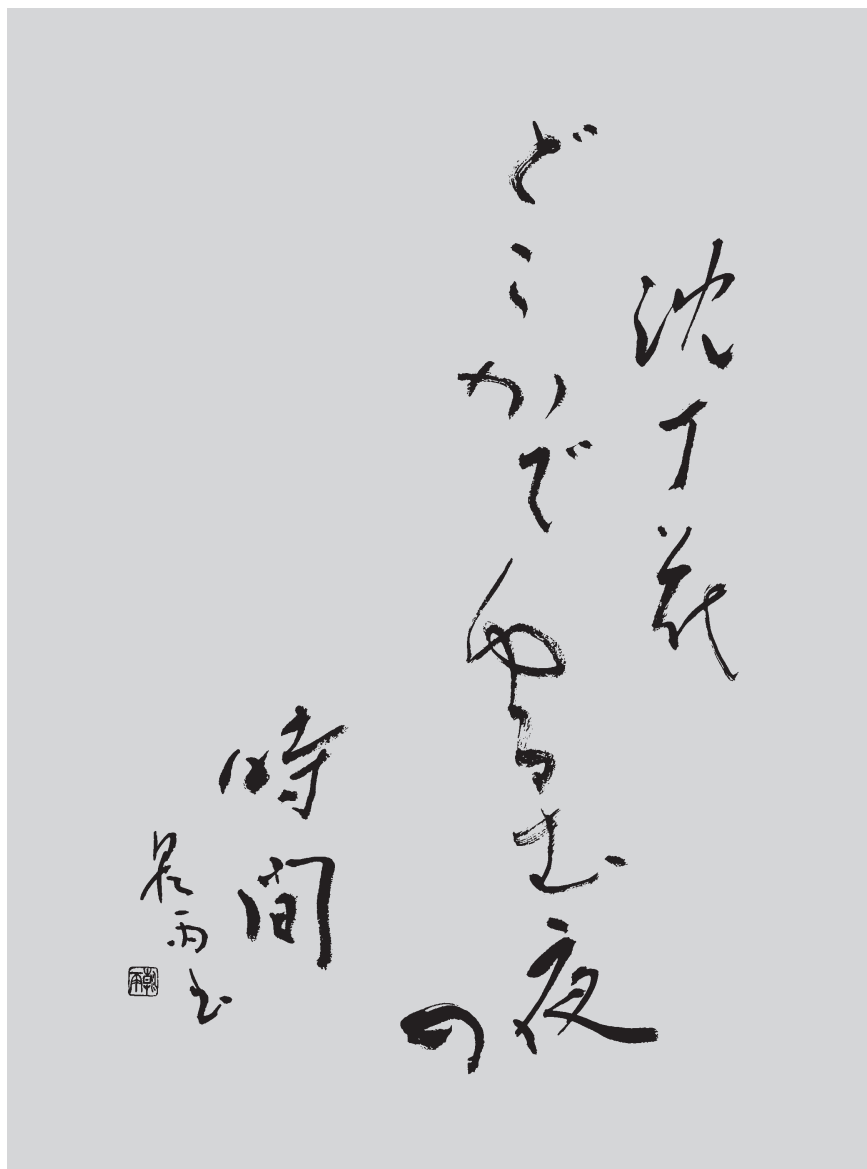 沈丁花
どこかでゆるむ夜の
時間
書